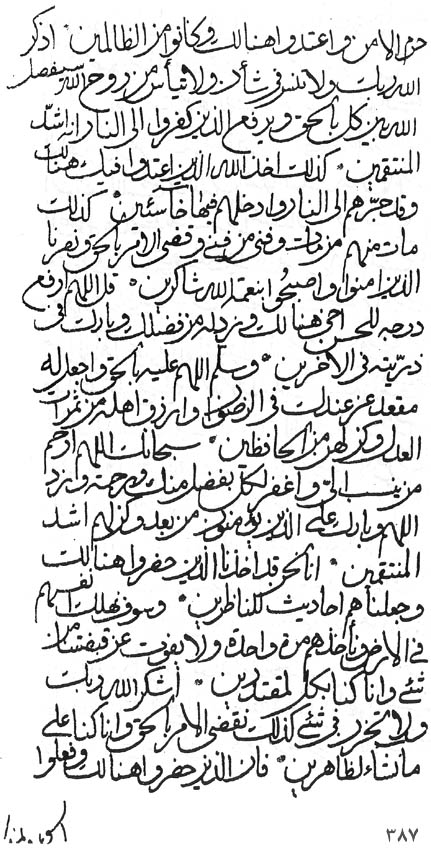 من الامن واعتدوا هنالك وكانوا من الظالمين اذكر
الله ربك ولا تبئس في شأن ولا تيأس من روح الله سيفصل
الله بين كل بالحق ويرفع الذين كفروا الى النار انه اشد
المنتقمين كذلك اخذ الله الذين اعتدوا فيك هنالك
وقد حرهم الى النار وادخلهم فيها خاسئين كذلك
مات منهم من مات وفنى من فنى وقضى الامر بالحق ونصرنا
الذين امنوا واصبحوا بنعمة الله شاكرين قل اللهم ارفع
درجة للحسن احى هنالك وزد له من فضلك وبارك في
ذريته في الآخرين وسلم اللهم عليه بالحق واجعل له
مقعد عز عندك في الرضوان وارزق اهله من ثمرات
العدل وكن لهم من الحافظين سبحانك اللهم ارحم
من ينيب الى واغفر لكل بفضل منك ورحمة وزد
اللهم وبارك على الذين يؤمنون من بعد وكن لهم اشد
المنتقمين انا نحن قد اخذنا الذين حفروا هنالك
وجعلناهم احاديث للناظرين وسوف نهلك نفسهم
في الارض نأخذهم مرة واحدة ولا يفوت عن قبضتنا من
شئ وانا كنا بكل لمقتدرين اشكر الله ربك
ولا تحزن في شئ كذلك نقضى الامر بالحق وانا كنا على
ما نشاء لظاهرين فان الذين حفروا هنالك وفعلوا
٣٨٧